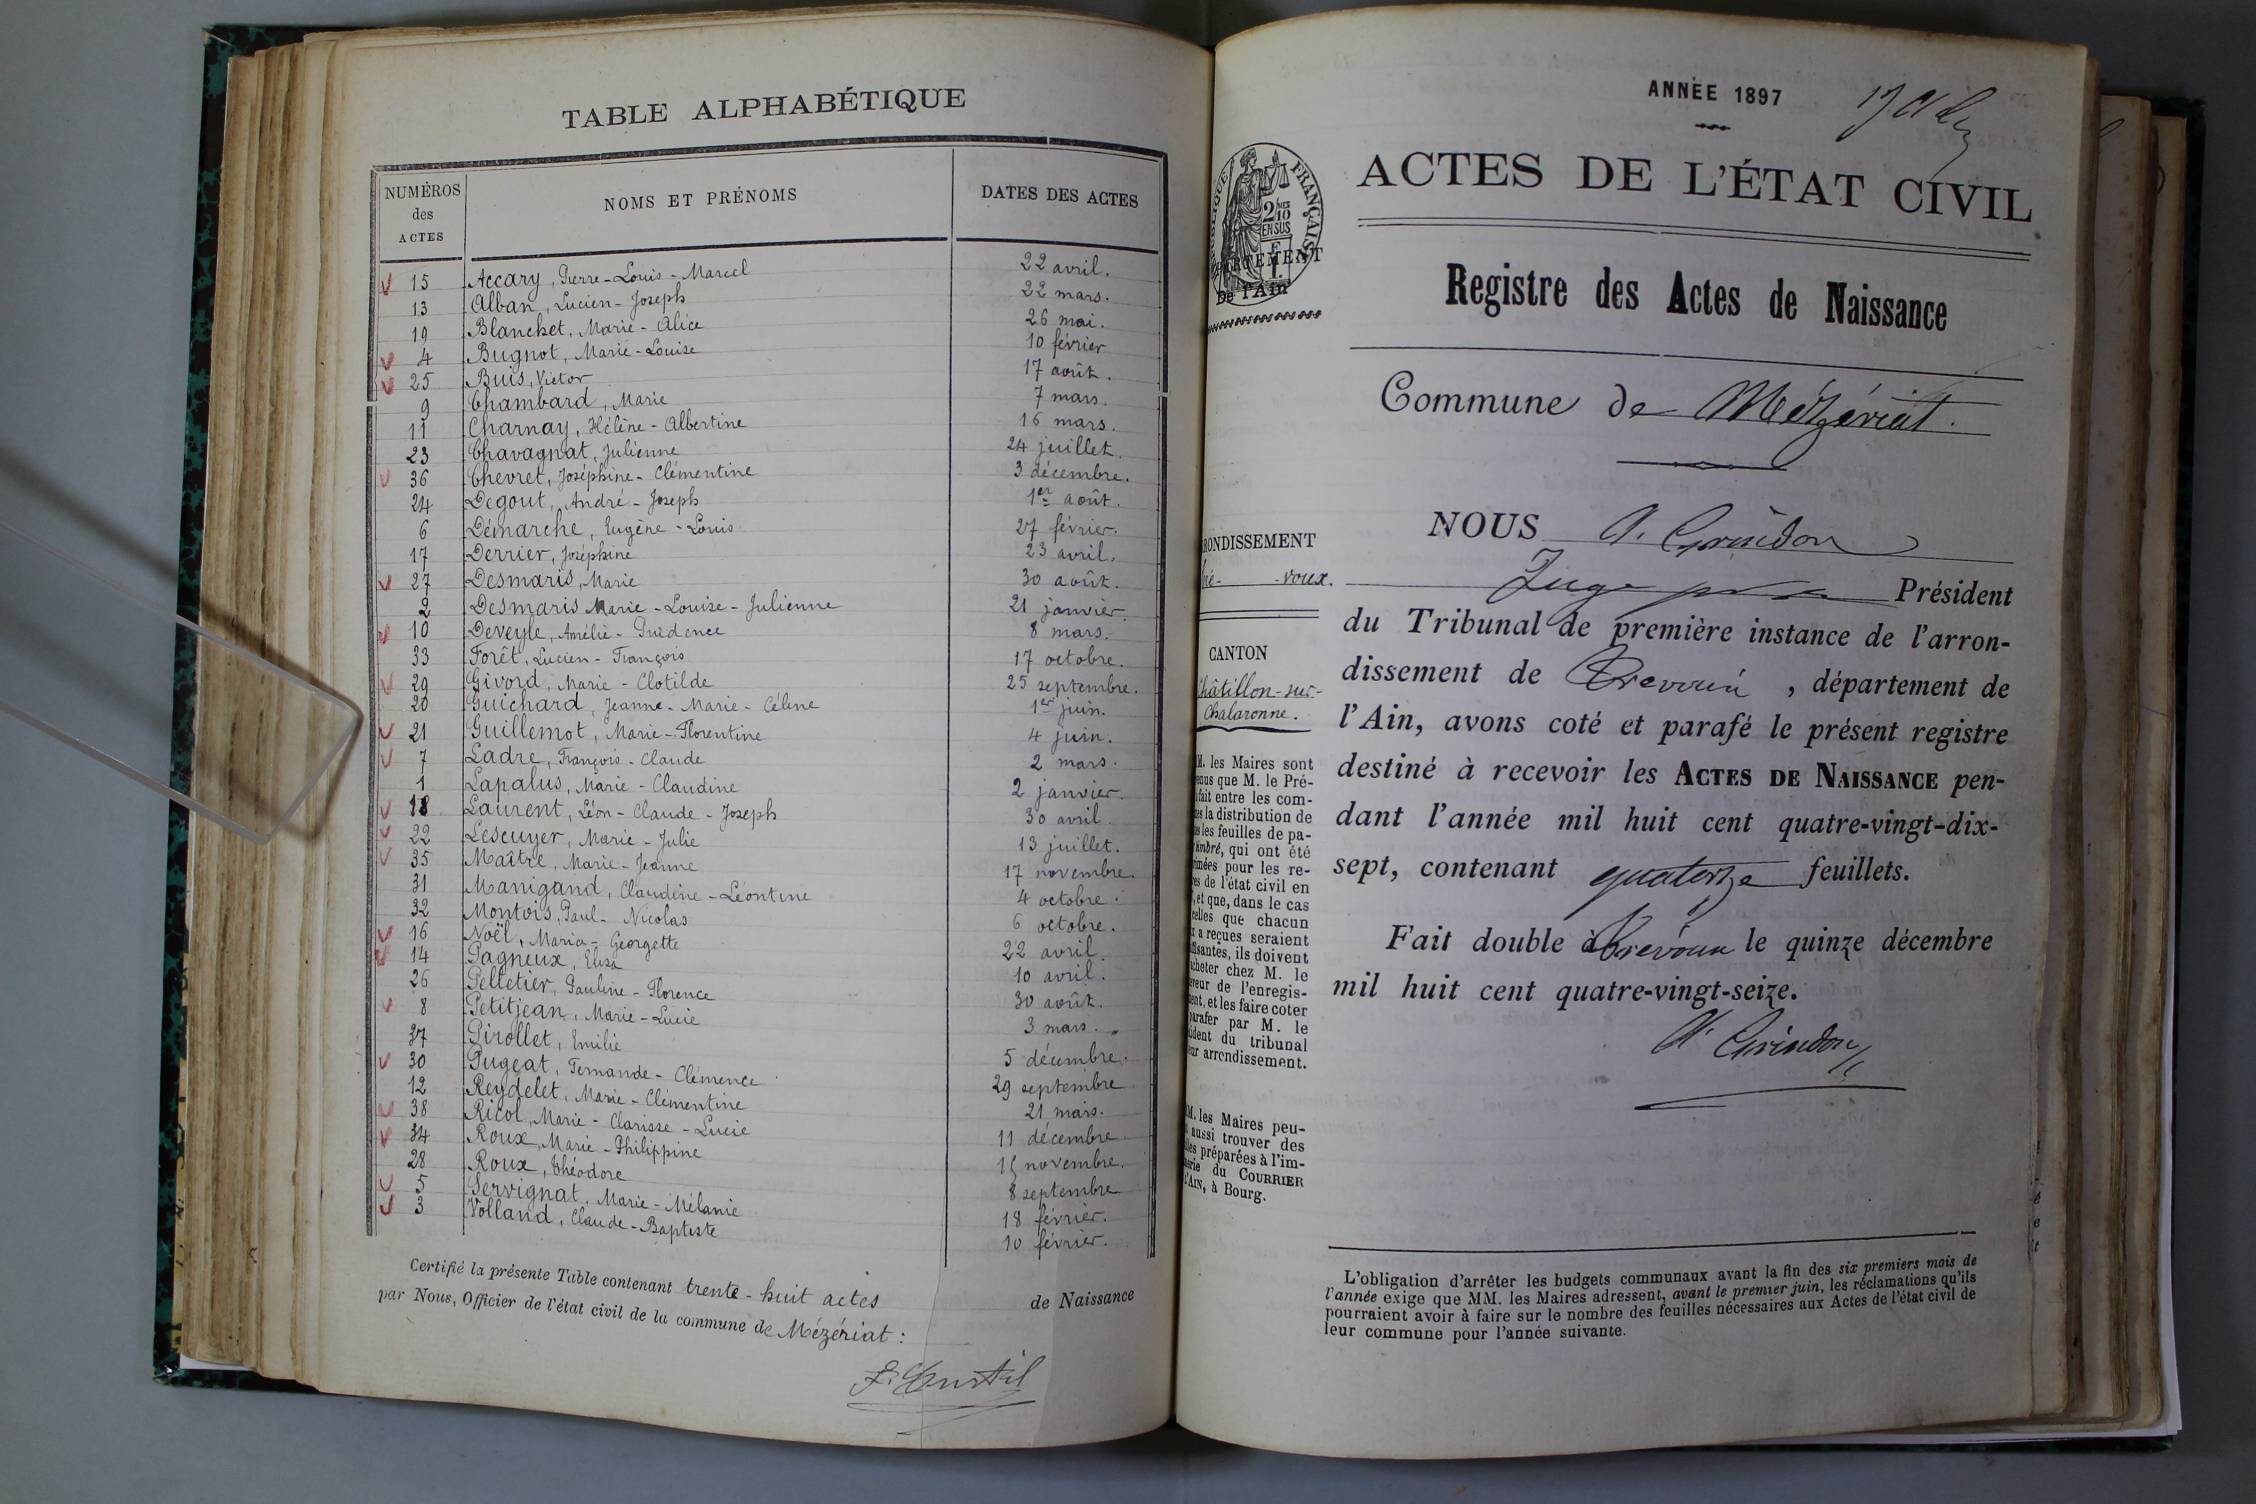 TABLE ALPHABÉTIQUE
NUMÉROS des ACTES NOMS ET PRÉNOMS DATES DES ACTES
15 Accary, Pierre-Louis-Marcel 22 avril.
13 Alban, Lucien-Joseph 22 mars.
19 Blanchet, Marie-Alice 26 mai.
4 Bugnot, Marie-Louise 10 février
25 Buis, Victor 17 août.
9 Chambard, Marie 7 mars.
11 Charnay, Hélène-Albertine 16 mars.
23 Chavagnat, Julienne 24 juillet.
36 Chevret, Joséphine-Clémentine 3 décembre.
24 Degout, André-Joseph 1er août.
6 Démarche, Eugène-Louis 27 février.
17 Derrier, Joséphine 23 avril.
27 Desmaris, Marie 30 août.
2 Desmaris Marie-Louise-Julienne 21 janvier.
10 Deveyle, Amélie-Prudence 8 mars.
33 Forêt, Lucien-François 17 octobre.
29 Givord, Marie-Clotilde 25 septembre.
20 Guichard, Jeanne-Marie-Céline 1er juin.
21 Guillemot, Marie-Florentine 4 juin.
7 Ladre, François-Claude 2 mars.
1 Lapalus, Marie-Claudine 2 janvier.
18 Laurent, Léon-Claude-Joseph 30 avril.
22 Lescuyer, Marie-Julie 13 juillet.
35 Maître, Marie-Jeanne 17 novembre.
31 Manigand, Claudine-Léontine 4 octobre.
32 Montois, Paul-Nicolas 6 octobre.
16 Noël, Maria-Georgette 22 avril.
14 Pagneux, Elisa 10 avril.
26 Pelletier, Pauline-Florence 30 août.
8 Petitjean, Marie-Lucie 3 mars.
37 Pirollet, Emilie 5 décembre.
30 Pugeat, Fernande-Clémence 29 septembre
12 Reydelet, Marie-Clémentine 21 mars.
38 Ricol, Marie-Clarisse-Lucie 11 décembre.
34 Roux, Marie-Philippine 15 novembre.
28 Roux, Théodore 8 septembre
5 Servignat, Marie-Mélanie 18 février.
3 Volland, Claude-Baptiste 10 février.
Certifié la présente Table contenant trente-huit actes de Naissance
par Nous, Officier de l'état civil de la commune de Mézériat :
ANNÉE 1897
ACTES DE L'ÉTAT CIVIL
FRANÇAISE
2 10
EN SUS
De l'Ain
Registre des Actes de Naissance
Commune de Mézériat.
NOUS A. Grindon
Juge Président
du Tribunal de première instance de l'arron-
dissement de Trévoux, département de
l'Ain, avons coté et parafé le présent registre
destiné à recevoir les ACTES DE NAISSANCE pen-
dant l'année mil huit cent quatre-vingt-dix-
sept, contenant quatorze feuillets.
Fait double à Trévoux le quinze décembre
mil huit cent quatre-vingt-seize.
A. Grindon
RONDISSEMENT
voux.
CANTON
Châtillon-sur-
Chalaronne.
MM. les Maires sont
que M. le Pré-
fait entre les com-
la distribution de
les feuilles de pa-
timbré, qui ont été
pour les re-
de l'état civil en
et que, dans le cas
celles que chacun
a reçues seraient
ils doivent
acheter chez M. le
de l'enregis-
et les faire coter
parafer par M. le
du tribunal
arrondissement.
MM. les Maires peu-
aussi trouver des
préparées à l'im-
du COURRIER
l'AIN, à Bourg.
L'obligation d'arrêter les budgets communaux avant la fin des six premiers mois de
l'année exige que MM. les Maires adressent, avant le premier juin, les réclamations qu'ils
pourraient avoir à faire sur le nombre des feuilles nécessaires aux Actes de l'état civil de
leur commune pour l'année suivante.